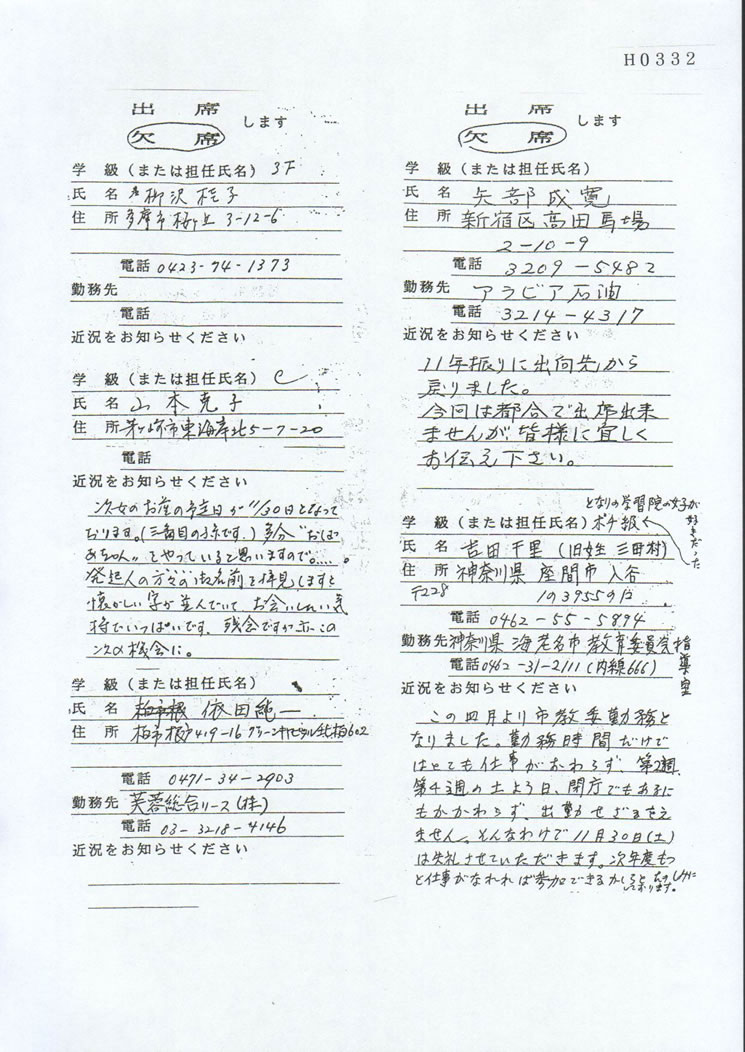 H0332
出席
欠席
します
学 級（または担任氏名） 3F
氏 名 柳沢桂子
住 所 多摩市桜ヶ丘 3-12-6
電話 0423-74-1373
勤務先
電話
近況をお知らせください
学 級（または担任氏名） C
氏 名 山本克子
住 所 茅ヶ崎市東海岸北5-7-20
電話
近況をお知らせください
次女のお産の予定日が11/30日となって
おります。(三番目の孫です。)多分"おばあ
ちゃん"をやっていると思いますので。……
発起人の方々のお名前を拝見しますと
懐かしい字が並んでいて、お会いしたい気
持でいっぱいです。残念ですが、又この
次の機会に。
学 級（または担任氏名）
氏 名 依田純一
住 所 柏市根戸419-16 グリーンキャピタル北柏602
電話 0471-34-2903
勤務先 芙蓉総合リース(株)
電話 03-3218-4146
近況をお知らせください
出席
欠席
します
学 級（または担任氏名）
氏 名 矢部成寛
住 所 新宿区高田馬場
2-10-9
電話 3209-5482
勤務先 アラビア石油
電話 3214-4317
近況をお知らせください
11年振りに出向先から
戻りました。
今回は都合で出席出来
ませんが、皆様に宜しく
お伝え下さい。
となりの学習院の女子が
好きだった
学 級（または担任氏名）
氏 名 吉田千里 (旧姓 三田村)
住 所 神奈川県 座間市 入谷
〒228 1の3955の12
電話 0462-55-5894
勤務先 神奈川県 海老名市 教育委員会 指導室
電話 0462-31-2111 (内線666)
近況をお知らせください
この四月より市教委勤務と
なりました。勤務時間だけで
はとても仕事がおわらず、第2週、
第4週の土よう日、閉庁でもあるに
もかかわらず、出勤せざるをえ
ません。そんなわけで11月30日(土)
は失礼させていただきます。次年度もっ
と仕事がなれれば参加できるかしらと
しております。